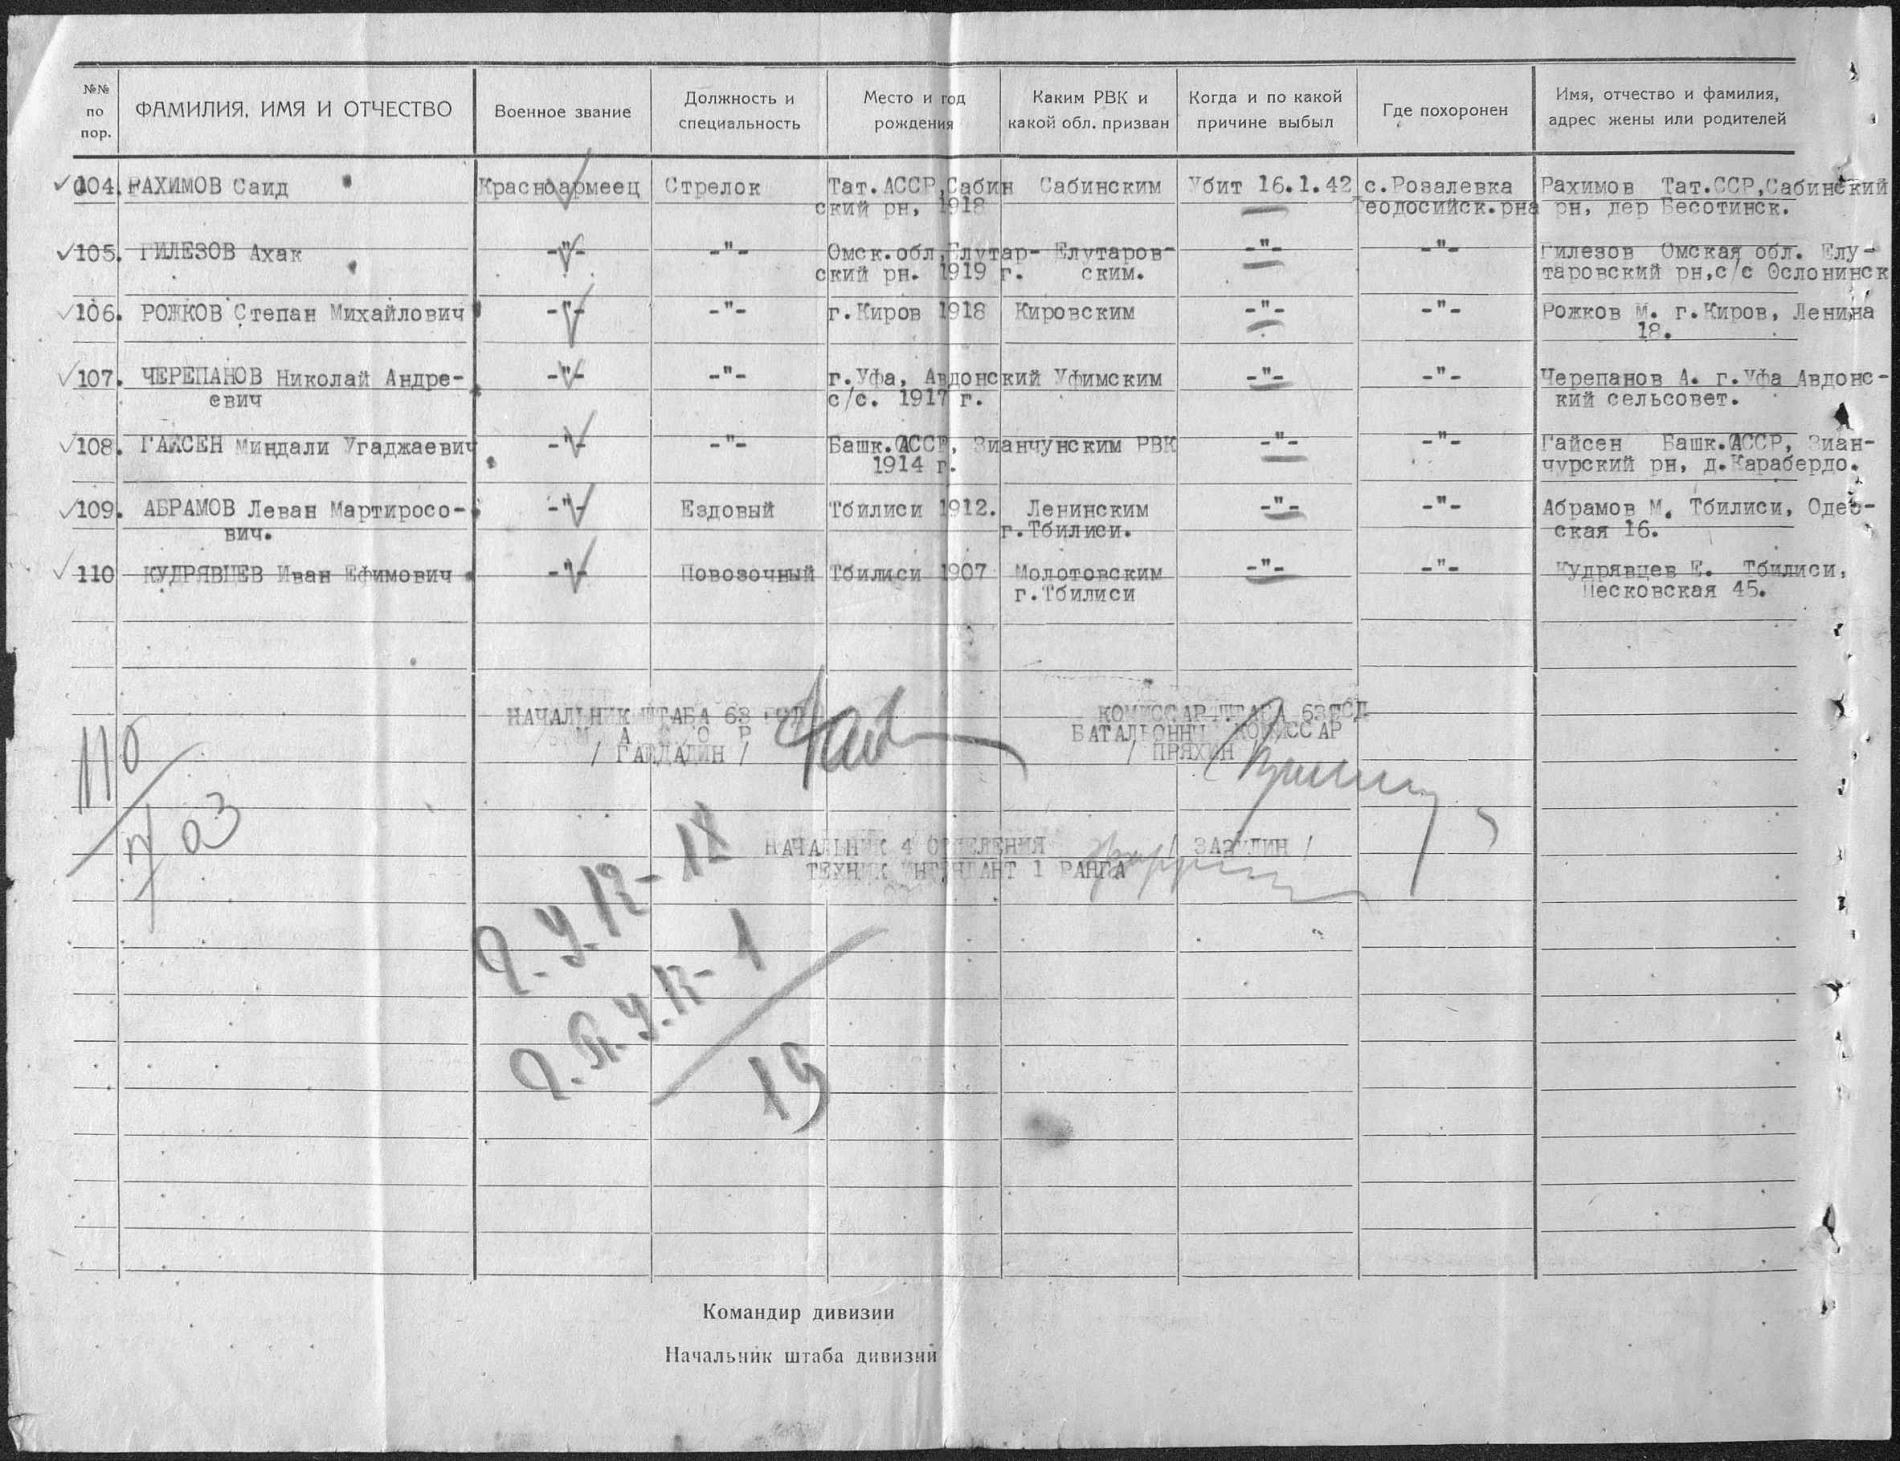 №№ по пор.
ФАМИЛИЯ, ИМЯ И ОТЧЕСТВО
Военное звание
Должность и специальность
Место и год рождения
Каким РВК и какой обл. призван
Когда и по какой причине выбыл
Где похоронен
Имя, отчество и фамилия, адрес жены или родителей
104. РАХИМОВ Саид Красноармеец Стрелок Тат.АССР,Сабин Сабинским Убит 16.1.42 с.Розалевка Рахимов Тат.ССР,Сабинский
ский рн, 1918 Феодосийск.рна рн, дер Бесотинск.
105. ГИЛЕЗОВ Ахак -"- -"- Омск.обл,Елутар- Елутаров- -"- -"- Гилезов Омская обл. Елу-
ский рн. 1919 г. ским. таровский рн,с/с Ослонинск
106. РОЖКОВ Степан Михайлович -"- -"- г.Киров 1918 Кировским -"- -"- Рожков М. г.Киров, Ленина
18.
107. ЧЕРЕПАНОВ Николай Андре- -"- -"- г.Уфа, Авдонский Уфимским -"- -"- Черепанов А. г.Уфа Авдонс-
евич с/с. 1917 г. кий сельсовет.
108. ГАЙСЕН Миндали Угаджаевич -"- -"- Башк.АССР, Зианчунским РВК -"- -"- Гайсен Башк.АССР, Зиан-
1914 г. чурский рн, д.Карабердо.
109. АБРАМОВ Леван Мартиросо- -"- Ездовый Тбилиси 1912. Ленинским -"- -"- Абрамов М. Тбилиси, Одес-
вич. г.Тбилиси. ская 16.
110 КУДРЯВЦЕВ Иван Ефимович -"- Повозочный Тбилиси 1907 Молотовским -"- -"- Кудрявцев Е. Тбилиси,
г.Тбилиси Песковская 45.
НАЧАЛЬНИК ШТАБА 63 ГСД КОМИССАР ШТАБА 63 ГСД
М А Й О Р БАТАЛЬОННЫЙ КОМИССАР
/ / / ПРЯХИН /
110
НАЧАЛЬНИК 4 ОТДЕЛЕНИЯ
ТЕХНИК ИНТЕНДАНТ 1 РАНГА
19
Командир дивизии
Начальник штаба дивизии